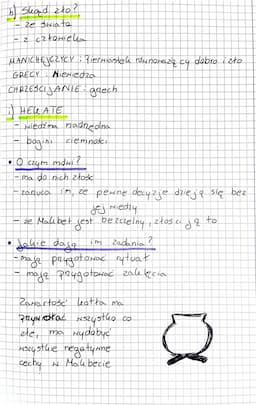 h) Skąd zło?
- ze świata
- z człowieka
MANICHEJCZYCY: Pierwiastek równoważą cy dobro i zło
GRECY: Niewiedza
CHRZEŚCIJANIE: grzech
i) HEKATE
- wiedźma nadrzędna
- bogini ciemności
• O czym mówi?
- ma do nich złość
- zarzuca im, że pewne decyzje dzieją się bez
jej wiedzy
- że Makbet jest bezczelny, złości ją to
• Jakie daje im zadania?
- mają przygotować rytuał
- mają przygotować zaklęcia
Zawartość kotła ma
przywołać wszystko co
złe, ma wydobyć
wszystkie negatywne
cechy w Makbecie